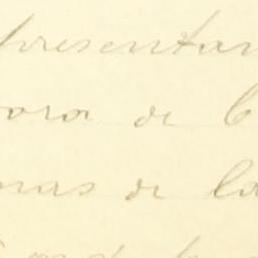 presentan
ora de C
nas de la